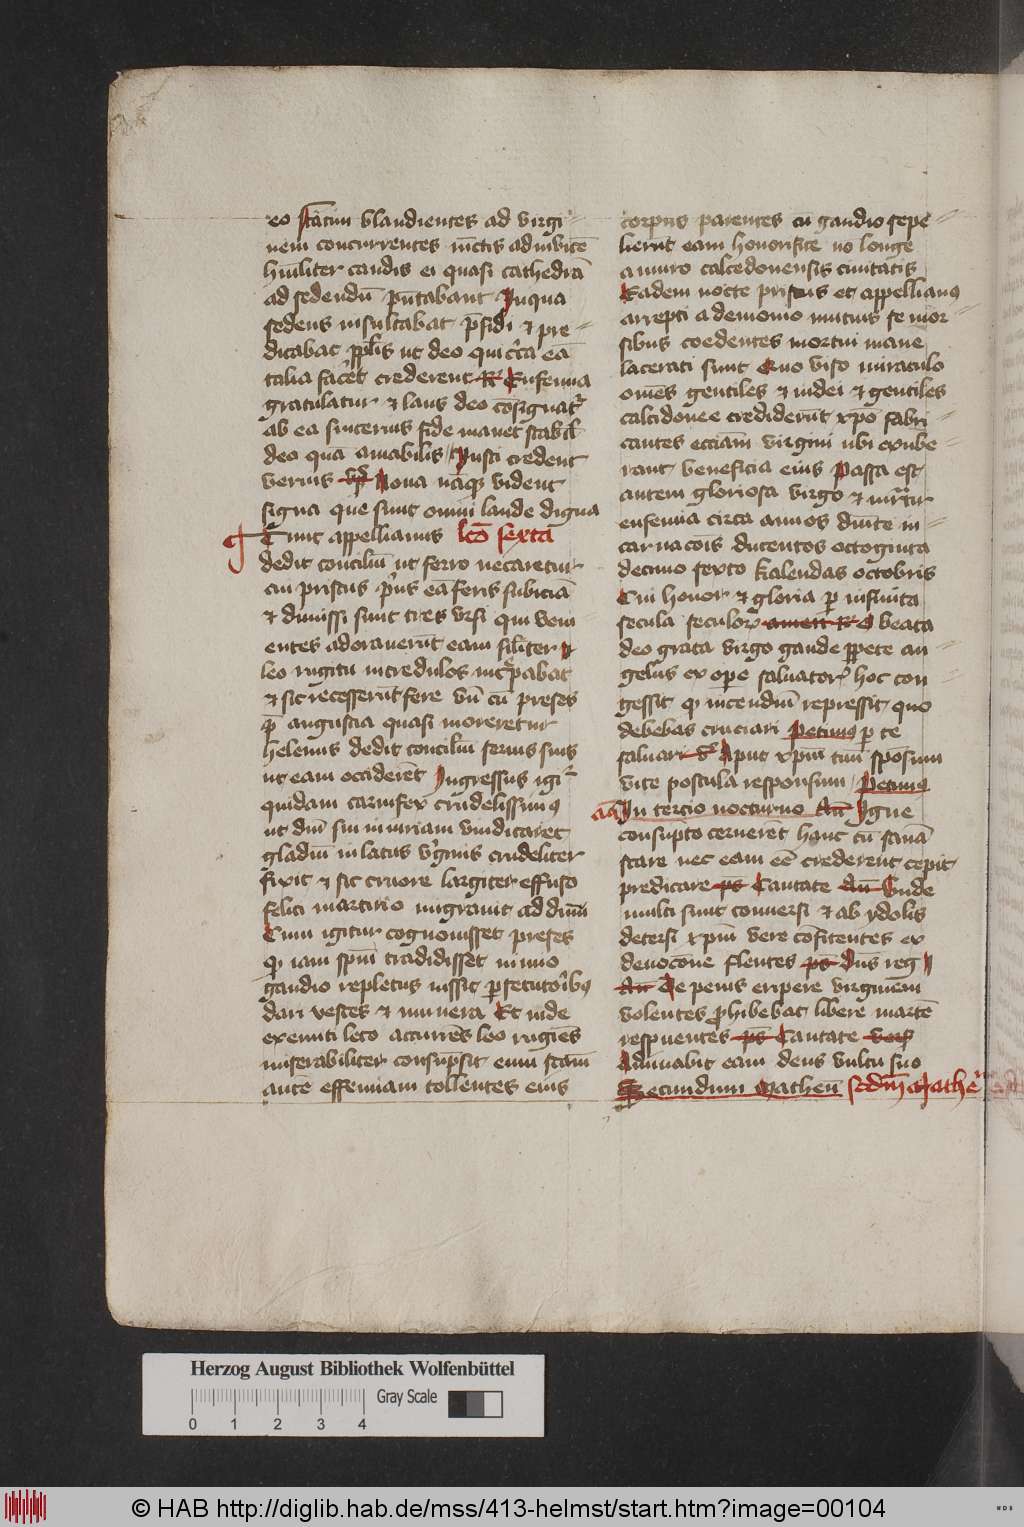 eo statim blandientes ad virgi
nem concurrentes iūctis adinvicē
hūiliter caudis ei quasi cathedrā
ad sedendū p̄ntabant Inqua
sedens insultabat p̄sidi et pre
dicabat pplīs ut deo qui cīca eā
talia facēt crederent R Eufemia
gratulatur et laus deo cōsignatᵣ
ab ea sincerus fide manet stabił
deo qua amabilis Iusti credent
verius vp̄ Noua nāqꝫ vident
signa que sunt omni laude digna
Tunc appellianus lc̄o sexta
dedit conciliū ut ferro necaretur
cui priscus prius eā feris subiciā
et dimissi sunt tres vrsi qui veni
entes adorauerūt eam sił̄iter et
leo rugitu incredulos increpabat
et sic recesserūt fere Vn̄ cū preses
p̄ angustia quasi moreretur
helenus dedit conciliū seruus suus
ut eam occiderēt Ingressus igiᵣ
quidam carnifex crudelissimꝰ
ut dn̄i sui iniuriam vindicaret
gladiū in latus vginis crudeliter
fixit et sic cruore largiter effuso
felici martirio migrauit ad dn̄m
Cum igitur cognouisset preses
qꝫ iam spm̄ tradidisset nimio
gaudio repletus iussit psecutoribꝰ
dari vestes et munera Et inde
exeunti leto accurrēs leo rugiēs
miserabiliter consūpsit eum scām
autē effemiam tollentes eius
corpus parentes cū gaudio sepe
lierūt eam honorifice nō longe
a muro calcedonensis ciuitatis
Eadem nocte priscus et appellianꝰ
arrepti a demonio mutuis se mor
sibus coedentes mortui mane
lacerati sunt Quo viso miraculo
omēs gentiles et iudei et gentiles
calcidonee crediderūt xpō fabri
cantes ecciam virgini ubi exube
rant beneficia eius Passa est
autem gloriosa virgo et mrtir
eufemia circa annos dnīte in
carnacōis ducentos octoginta
decimo sexto kalendas octobris
Cui honor et gloria p infinita
secula seculorꝫ amen R O beata
deo grata virgo gaude sppete an
gelus ex ope saluatorᵣ hoc con
gessit qꝫ incendiū repressit quo
debebas cruciari Petimꝰ p te
saluari V̄ Aput xpm̄ tuū spōsum
vite postula responsum Petimꝰ
In tercio nocturno An̄ Igne
consūpto cernerēt hanc cū sanā
stare nec eam eē crederent cepit
predicare ps Cantate An̄ Unde
multi sunt conuersi et ab ydolis
detersi xpm̄ vere cōfitentes ex
deuocōne flentes ps Dn̄s reg
An̄ De penis eripere virginem
volentes phibebat libere martē
respuentes ps Cantate vers
Adiuuabit eam deus vultu suo
Secundum Matheū scd̄m Mathēū
Herzog August Bibliothek Wolfenbüttel
Gray Scale
0 1 2 3 4
© HAB http://diglib.hab.de/mss/413-helmst/start.htm?image=00104